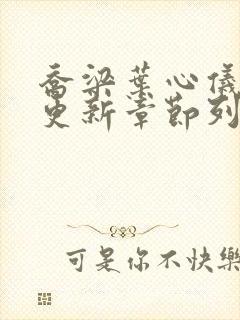 乔梁叶心仪
更新章节列
可是你不快樂